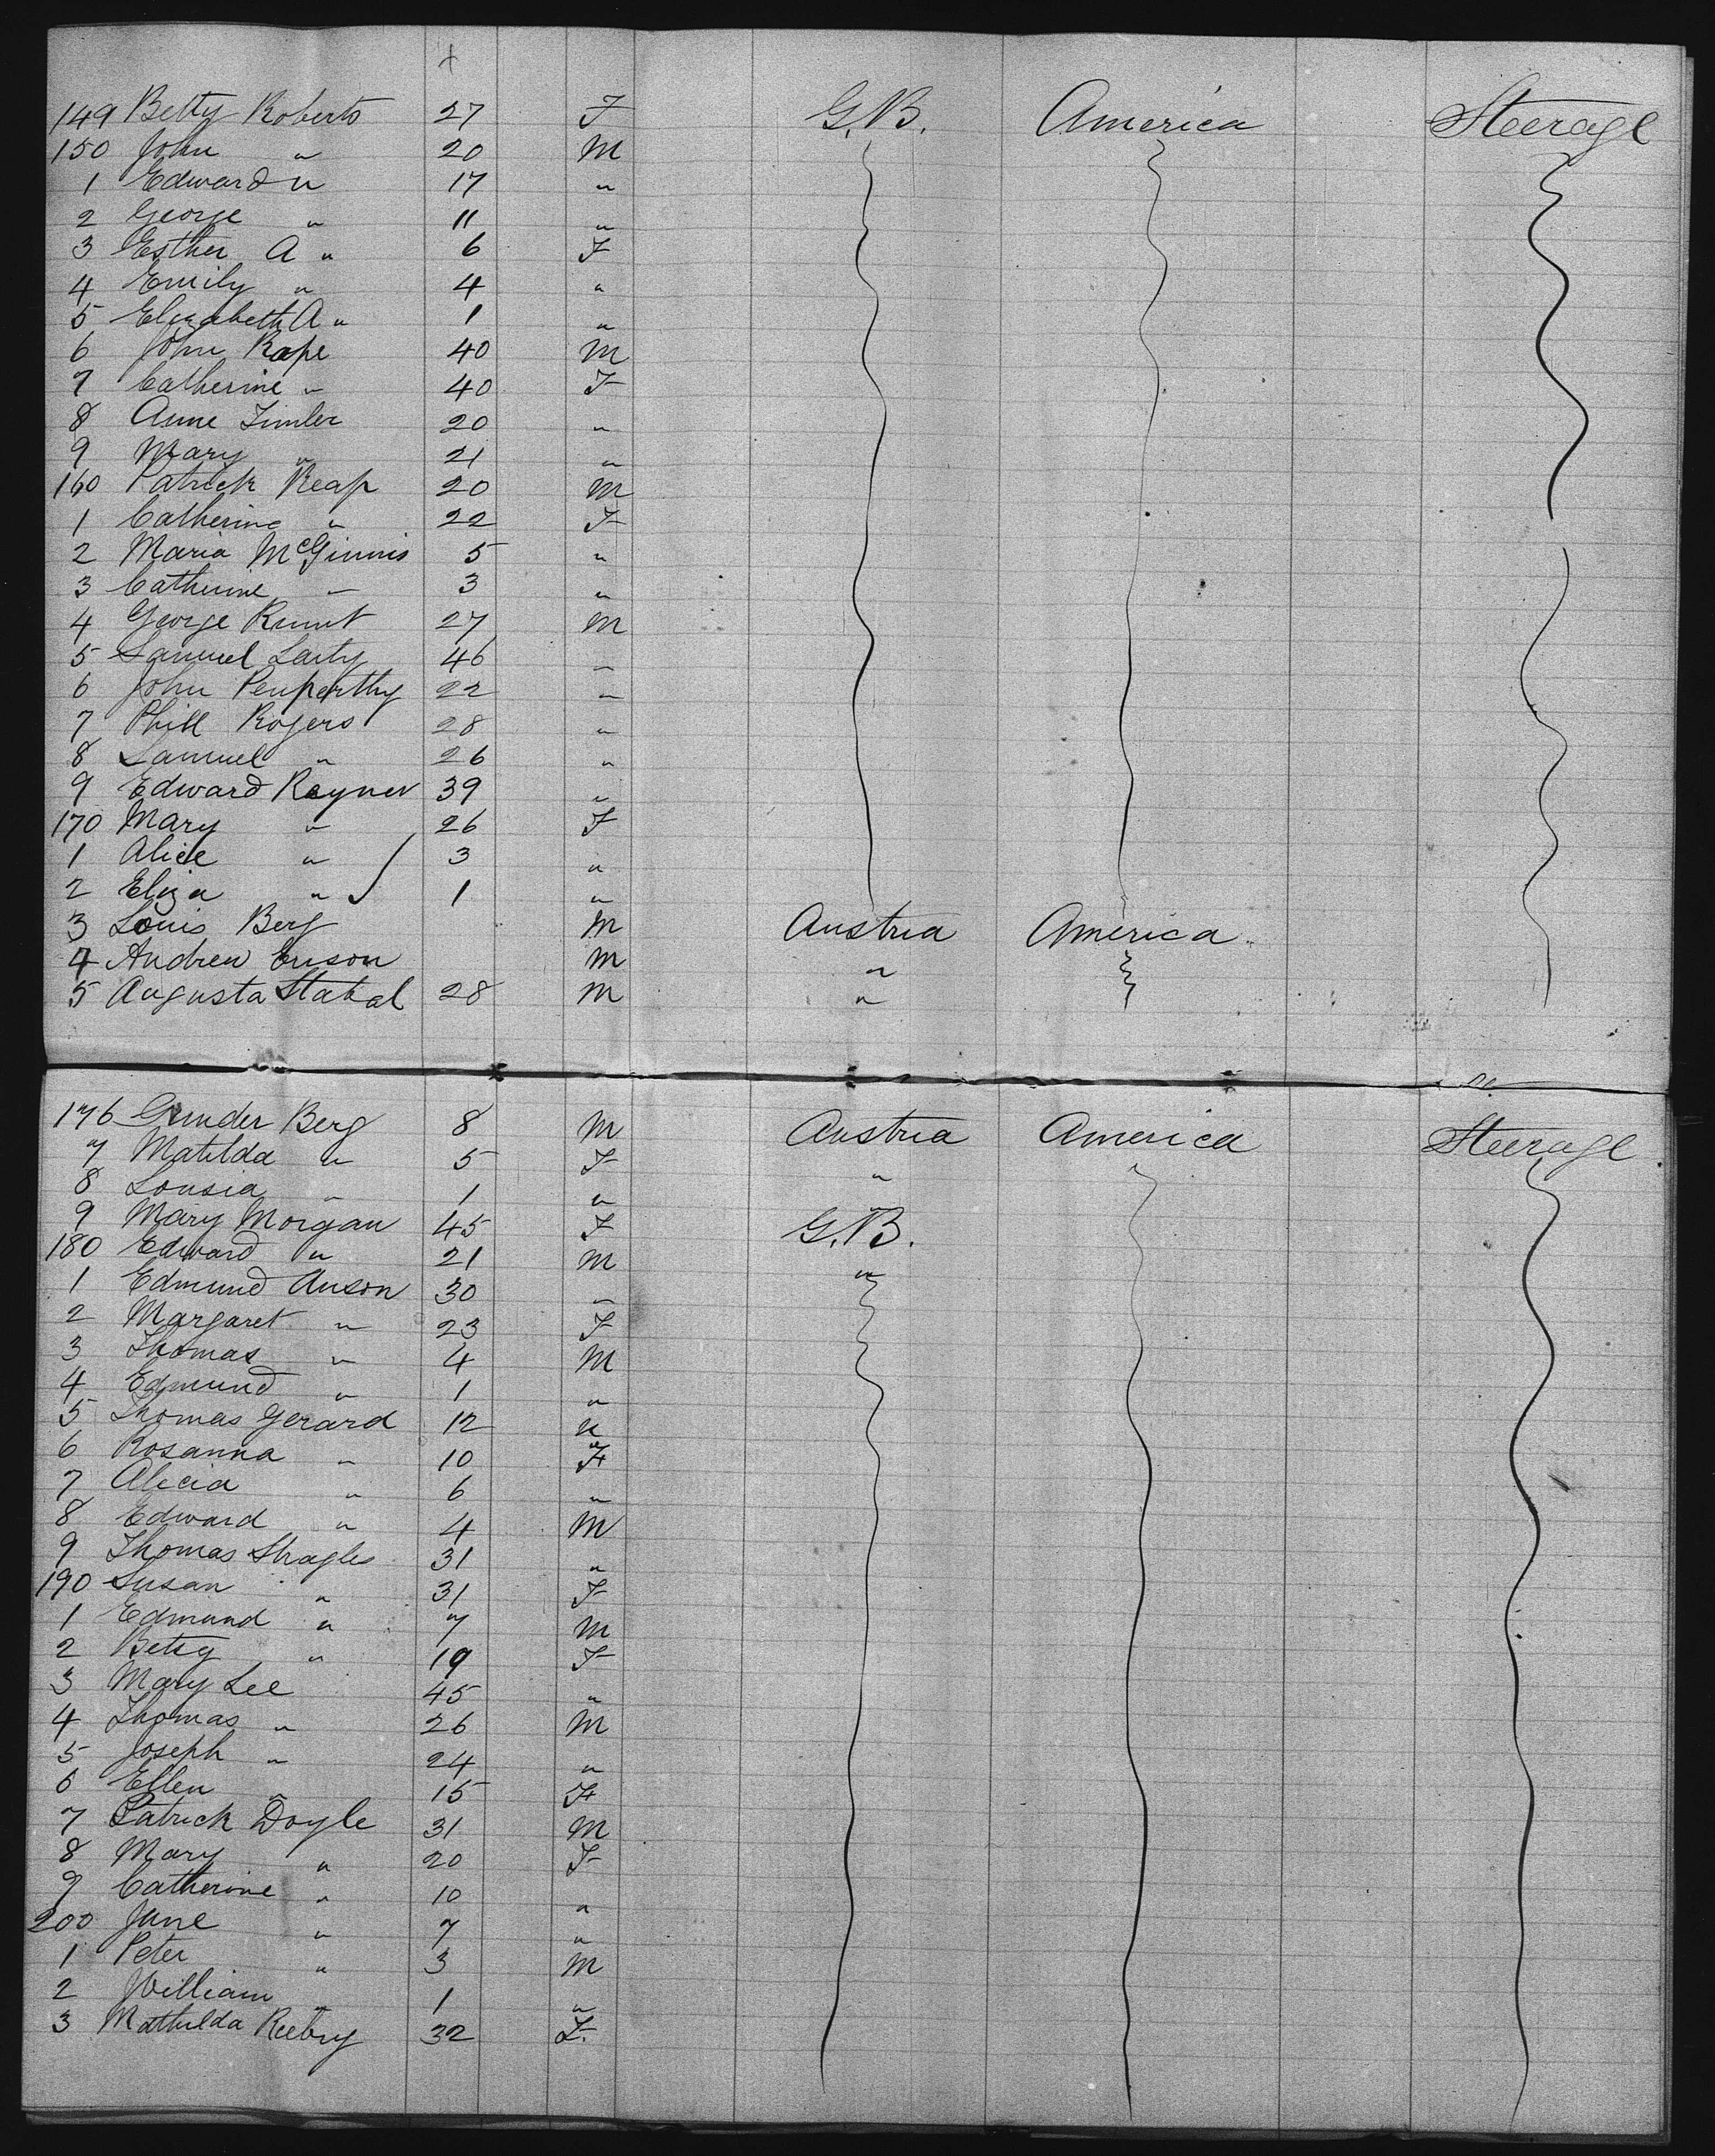 149 Betty Roberts 27 F G.B. America Steerage
150 John " 20 M
1 Edward " 17 "
2 George " 11 "
3 Esther A " 6 F
4 Emily " 4 "
5 Elizabeth A " 1 "
6 John Rope 40 M
7 Catherine " 40 F
8 Anne 20 "
9 Mary " 21 "
160 Patrick Reap 20 M
1 Catherine " 22 F
2 Maria McGinnis 5 "
3 Catherine " 3 "
4 George 27 M
5 Samuel 46 "
6 John 22 "
7 Phill Rogers 28 "
8 Samuel " 26 "
9 Edward Rayner 39 "
170 Mary " 26 F
1 Alice " 3 "
2 Eliza " 1 "
3 Louis Berg M Austria America
4 Andrew M "
5 Augusta 28 M "
176 Gunder Berg 8 M Austria America Steerage
7 Matilda " 5 F "
8 Lousia " 1 "
9 Mary Morgan 45 F G.B.
180 Edward " 21 M "
1 Edmund Anson 30 "
2 Margaret " 23 F
3 Thomas " 4 M
4 Edmund " 1 "
5 Thomas Gerard 12 "
6 Rosanna " 10 F
7 Alicia " 6 "
8 Edward " 4 M
9 Thomas 31 "
190 Susan " 31 F
1 Edmund " 7 M
2 Betsy " 19 F
3 Mary Lee 45 "
4 Thomas " 26 M
5 Joseph " 24 "
6 Ellen " 15 F
7 Patrick Doyle 31 M
8 Mary " 20 F
9 Catherine " 10 "
200 Jane " 7 "
1 Peter " 3 M
2 William " 1 "
3 Mathilda 32 F.